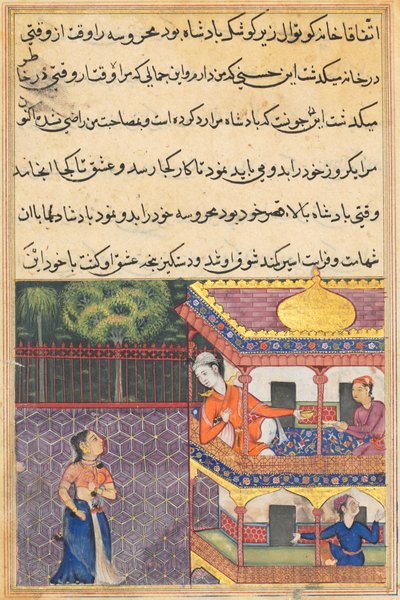 اتفاقا خانه کوتوال زیر کوشک بادشاه بود محروسه را وقت از وقتی
در خانه میگذشت این حسنی که من دارم و این جمالی که مرا وقت از وقتی در خاطر
میگذشت این چونست که بادشاه مرا رد کرده است و من راضی نشده اکنون
مرا یکروز خود را بدو می باید نمود تا کار کجا رسد و عشق تا کجا انجامد
وقتی بادشاه بالای قصر خود بود محروسه خود را بدو نمود بادشاه
شهامت و فراست اسیر کمند شوق او شد و دستگیر پنجه عشق او گشت با خود این